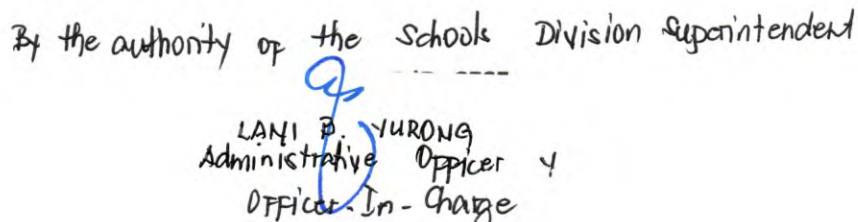 By the authority of the Schools Division Superintendent
LANI B. YURONG
Administrative Officer V
Officer-In-Charge